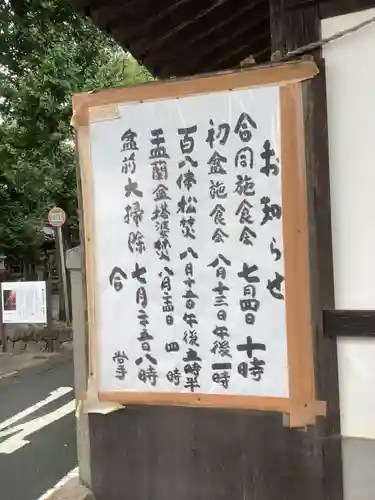 お知らせ
合同施食会 七月四日 十時
初盆施食会 八月十三日午後一時
百八体松焚 八月十五日午後五時半
盂蘭盆塔婆焚 八月十四日 四時
盆前大掃除 七月二五日八時